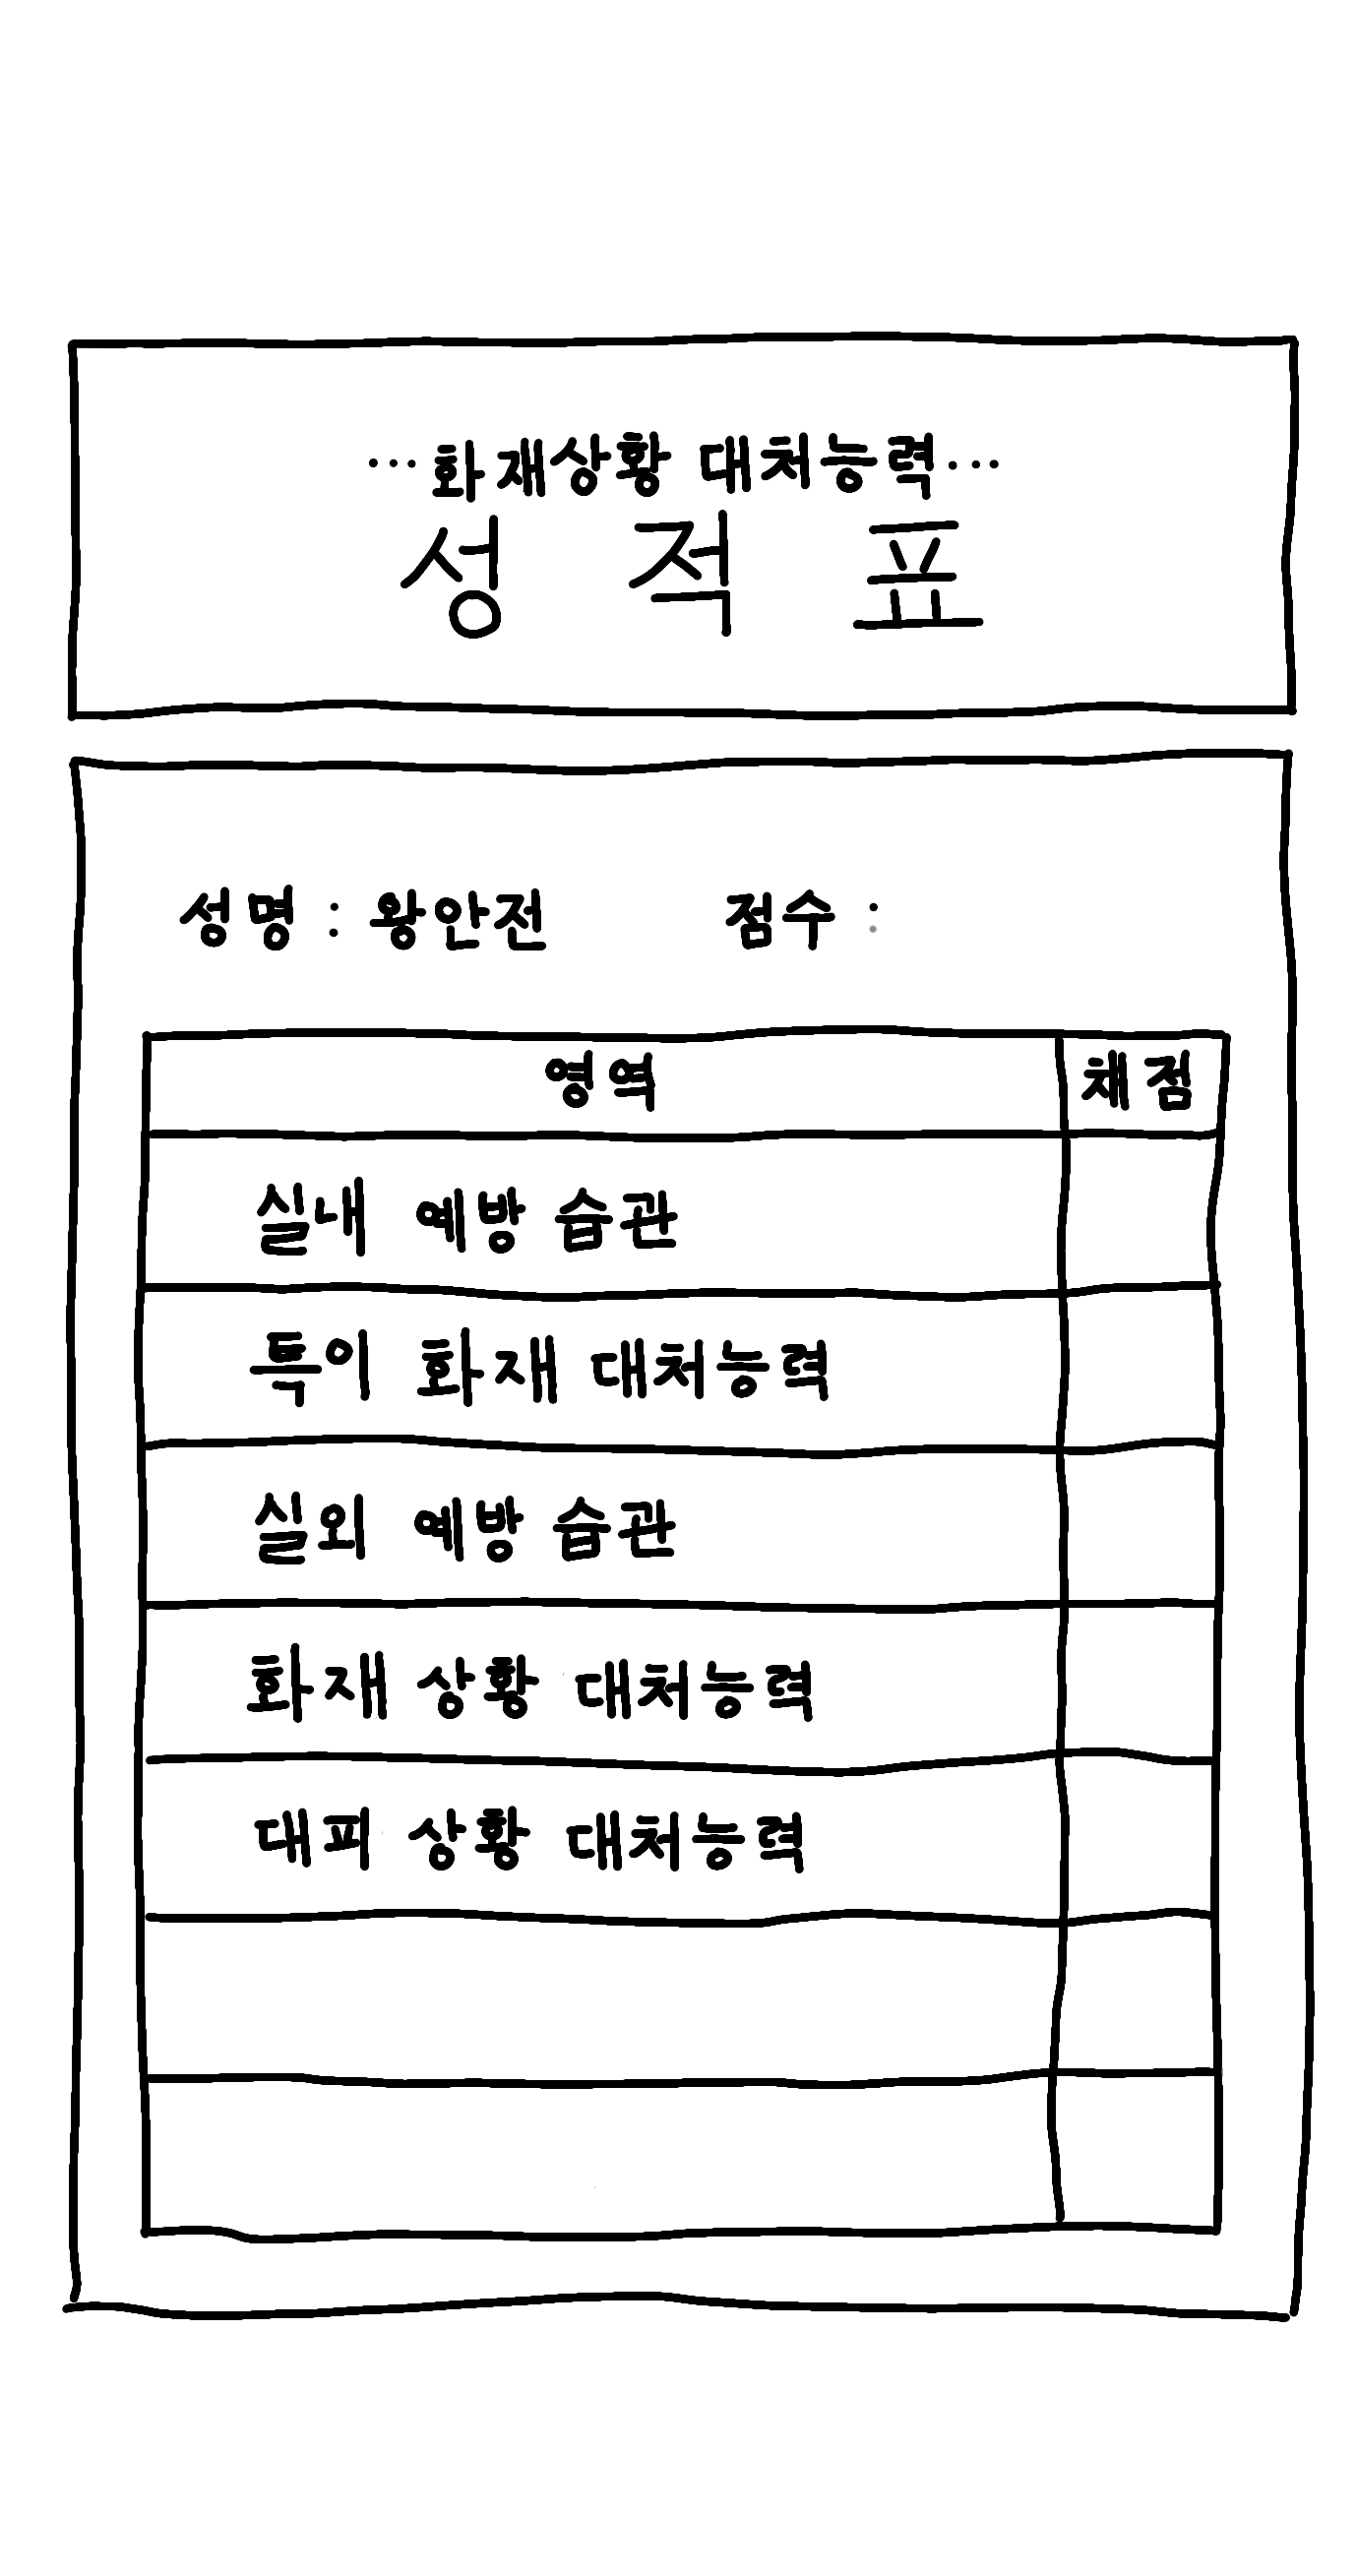 ···화재상황 대처능력···
성 적 표
성명 : 왕안전 점수 :
영역 채점
실내 예방 습관
특이 화재 대처능력
실외 예방 습관
화재 상황 대처능력
대피 상황 대처능력